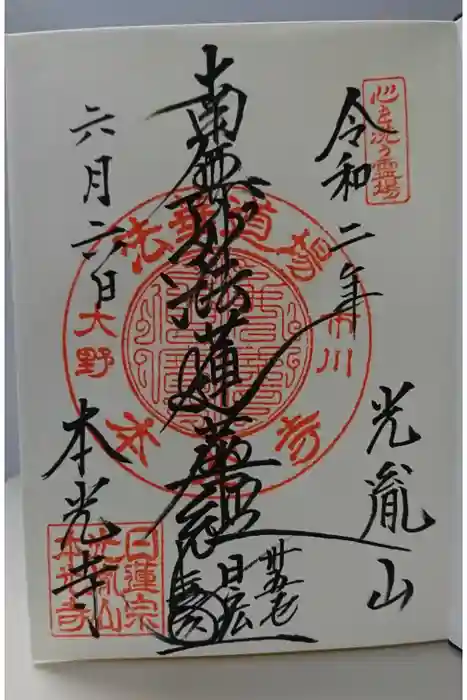 心を洗う霊場
令和二年
光胤山
南無妙法蓮華経
卅五七
日宏
六月六日
本光寺
法華道場
市川
大野
参拝
日蓮宗
光胤山
本光寺